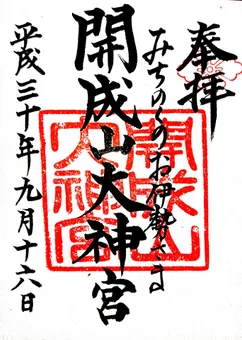 奉拝
みちのくのお伊勢さま
開成山大神宮
平成三十年九月十六日
開成山大神宮